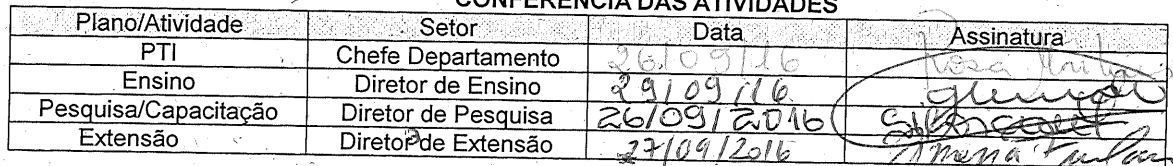 CONFERÊNCIA DAS ATIVIDADES
Plano/Atividade Setor Data Assinatura
PTI Chefe Departamento 26/09/16 Rosa
Ensino Diretor de Ensino 29/09/16
Pesquisa/Capacitação Diretor de Pesquisa 26/09/2016
Extensão Diretor de Extensão 27/09/2016